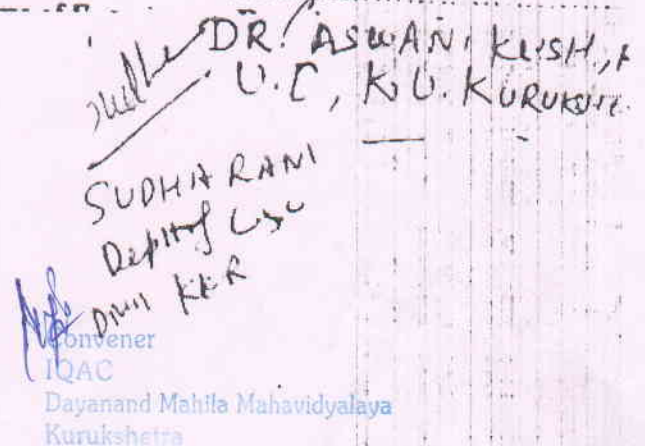 DR. ASWANI KUSH,
U.C, K.U. KURUKSHE
Sudha
SUDHA RANI
Dept of
DMM KKR
Convener
IQAC
Dayanand Mahila Mahavidyalaya
Kurukshetra